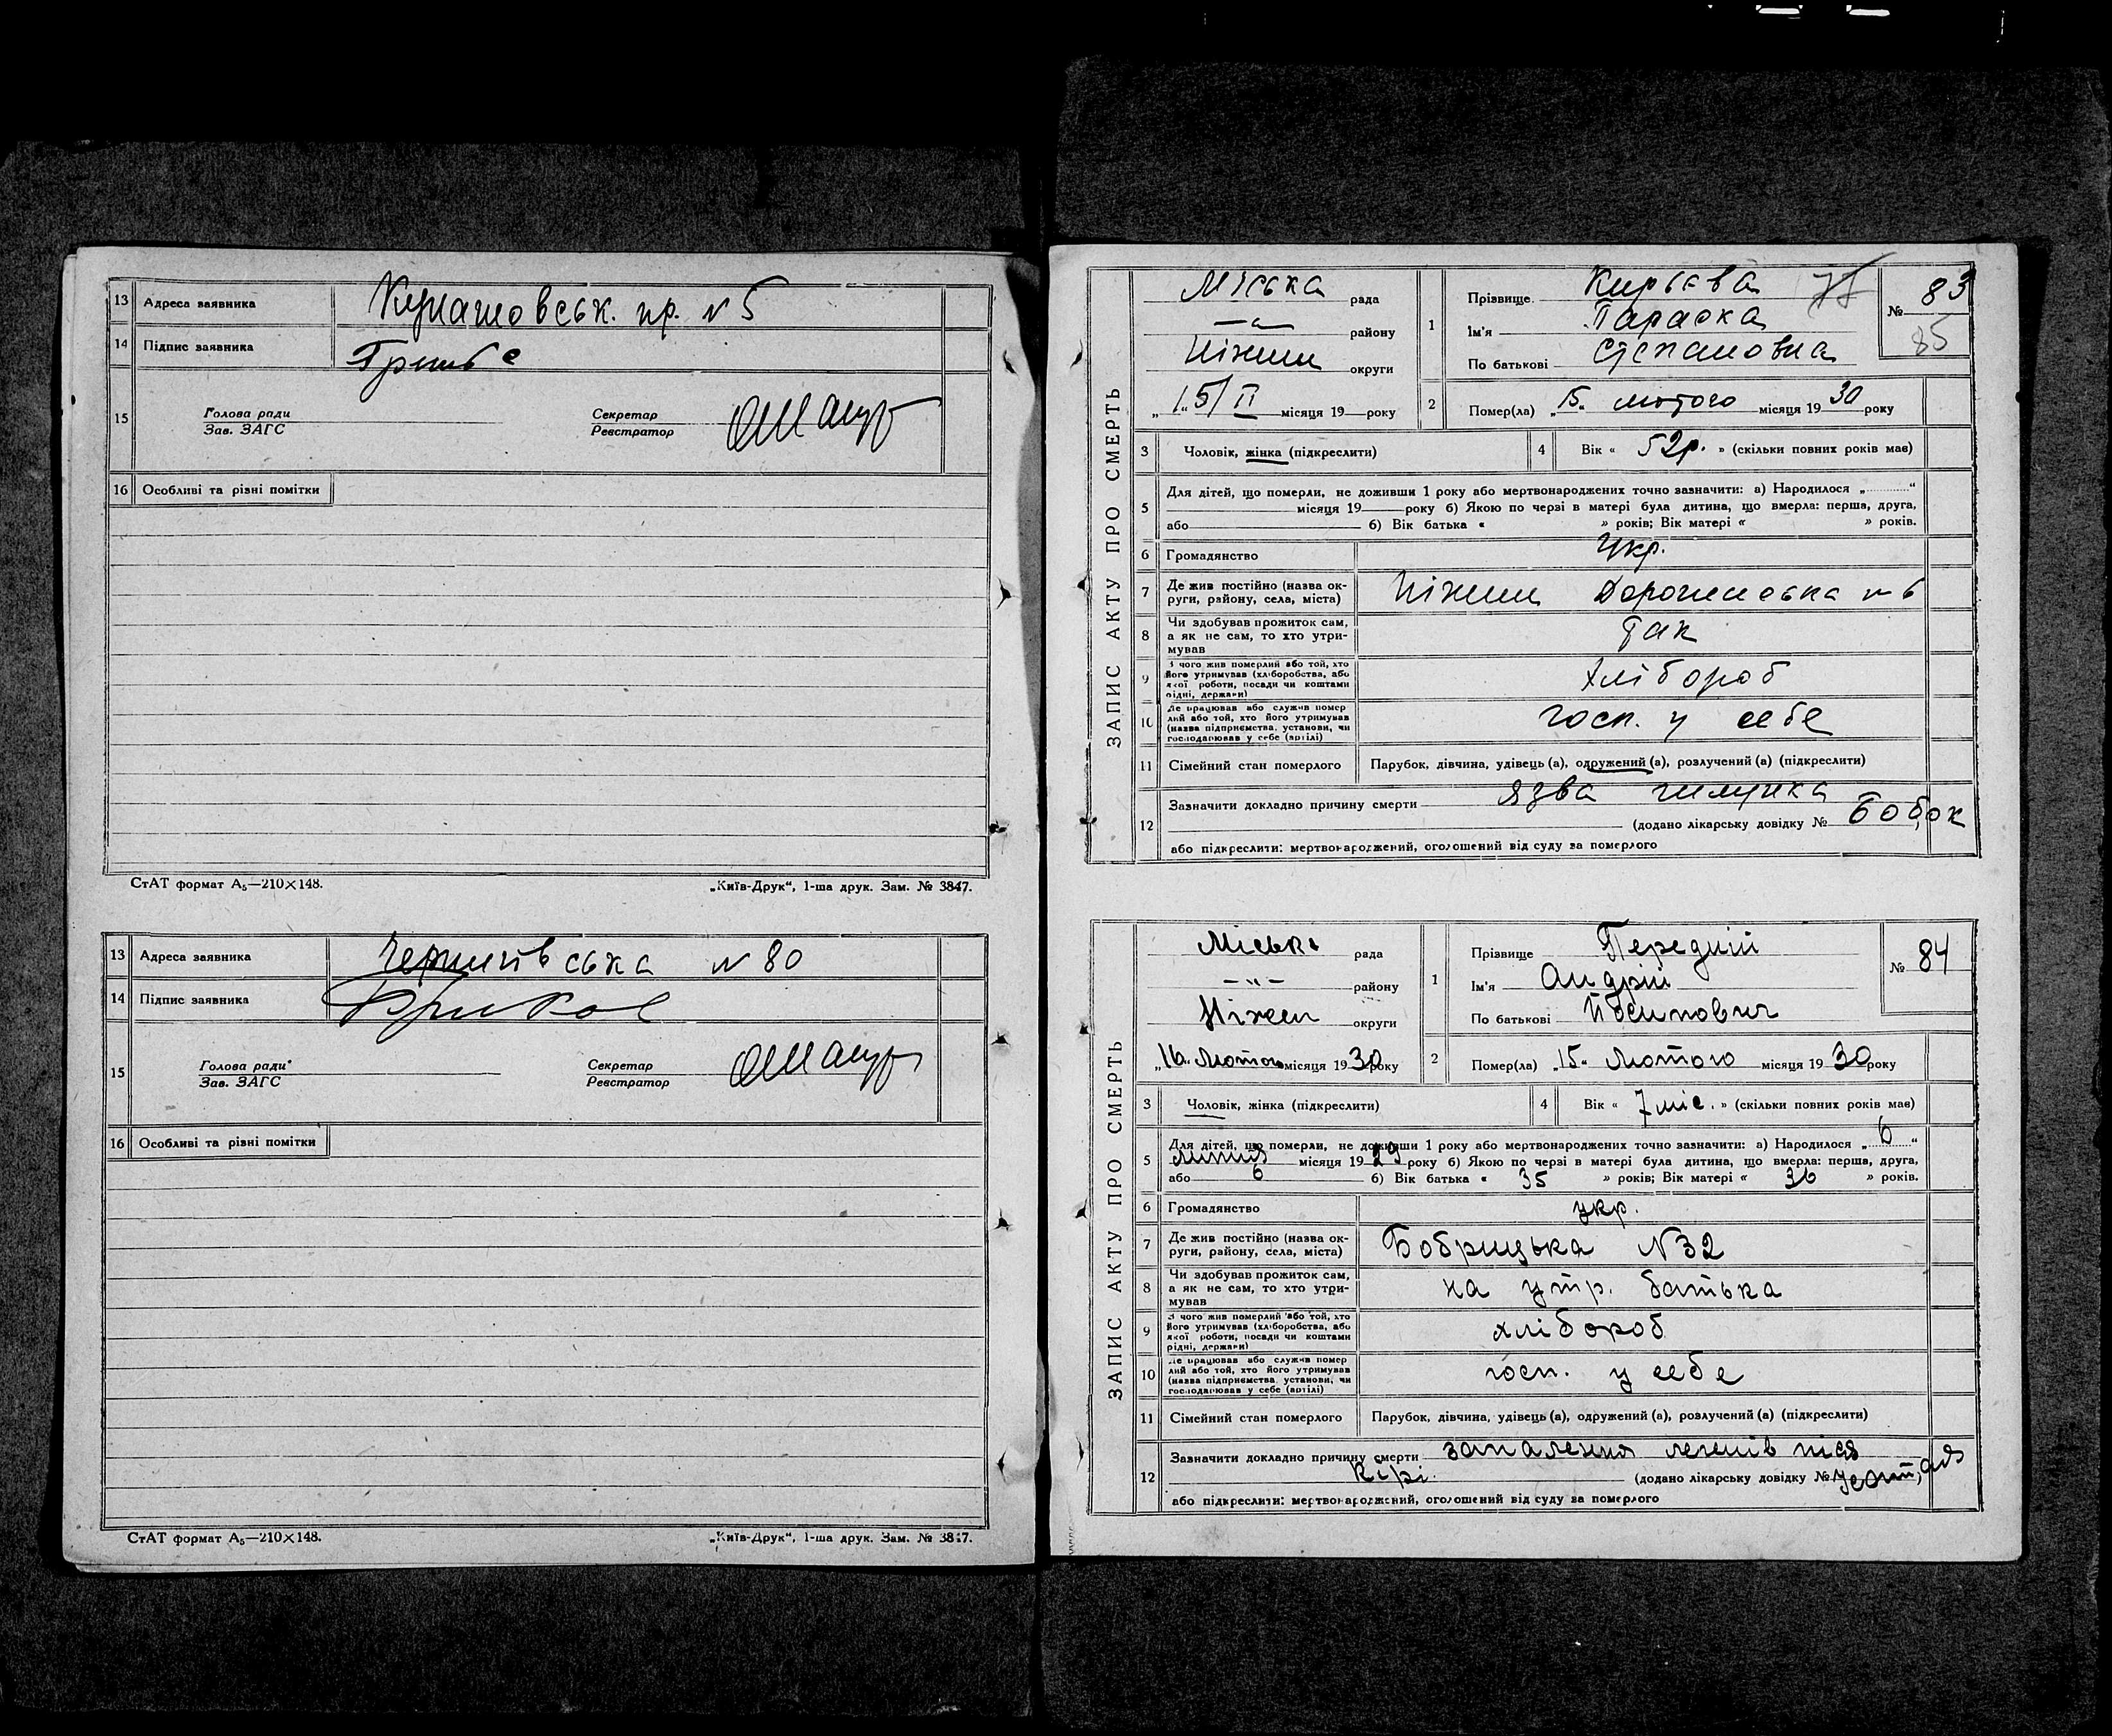 13 Адреса заявника Кунашовськ. пр. № 5
14 Підпис заявника
15 Голова ради Секретар
Зав. ЗАГС Реєстратор
16 Особливі та різні помітки
СтАТ формат А₅—210×148. „Київ-Друк“, 1-ша друк. Зам. № 3847.
13 Адреса заявника Чернигівська № 80
14 Підпис заявника
15 Голова ради Секретар
Зав. ЗАГС Реєстратор
16 Особливі та різні помітки
СтАТ формат А₅—210×148. „Київ-Друк“, 1-ша друк. Зам. № 3847.
ЗАПИС АКТУ ПРО СМЕРТЬ
Міська рада
—„— району
Ніжин округи
„15/II місяця 19 року
1 Прізвище Кирьєва
Ім'я Параска
По батькові Степановна
№ 83
85
2 Помер(ла) „15“ лютого місяця 1930 року
3 Чоловік, жінка (підкреслити) 4 Вік « 52р. » (скільки повних років має)
5 Для дітей, що померли, не доживши 1 року або мертвонароджених точно зазначити: а) Народилося „..........“
місяця 19 року б) Якою по черзі в матері була дитина, що вмерла: перша, друга,
або б) Вік батька « » років; Вік матері « » років.
6 Громадянство Укр.
7 Де жив постійно (назва ок-
руги, району, села, міста) Ніжин № 6
8 Чи здобував прожиток сам,
а як не сам, то хто утри-
мував так
9 З чого жив померлий або той, хто
його утримував (хліборобства, або
якої роботи, посади чи коштами
рідні, держави) хлібороб
10 Де працював або служив помер
лий або той, хто його утримував
(назва підприємства, установи, чи
господарював у себе (артілі) госп. у себе
11 Сімейний стан померлого Парубок, дівчина, удівець (а), одружений (а), розлучений (а) (підкреслити)
12 Зазначити докладно причину смерти язва
(додано лікарську довідку № Бобок
або підкреслити: мертвонароджений, оголошений від суду за померлого
ЗАПИС АКТУ ПРО СМЕРТЬ
Міська рада
—„— району
Ніжен округи
„16“ Лютого місяця 1930 року
1 Прізвище Передній
Ім'я Андрій
По батькові Йосипович
№ 84
2 Помер(ла) „15“ Лютого місяця 1930 року
3 Чоловік, жінка (підкреслити) 4 Вік « 7 міс. » (скільки повних років має)
5 Для дітей, що померли, не доживши 1 року або мертвонароджених точно зазначити: а) Народилося „6“
липня місяця 1929 року б) Якою по черзі в матері була дитина, що вмерла: перша, друга,
або 6 б) Вік батька « 35 » років; Вік матері « 36 » років.
6 Громадянство укр.
7 Де жив постійно (назва ок-
руги, району, села, міста) Бобрицька №32
8 Чи здобував прожиток сам,
а як не сам, то хто утри-
мував на утр. батька
9 З чого жив померлий або той, хто
його утримував (хліборобства, або
якої роботи, посади чи коштами
рідні, держави) хлібороб
10 Де працював або служив помер
лий або той, хто його утримував
(назва підприємства, установи, чи
господарював у себе (артілі) госп. у себе
11 Сімейний стан померлого Парубок, дівчина, удівець (а), одружений (а), розлучений (а) (підкреслити)
12 Зазначити докладно причину смерти запалення легенів після
кірі. (додано лікарську довідку №
або підкреслити: мертвонароджений, оголошений від суду за померлого